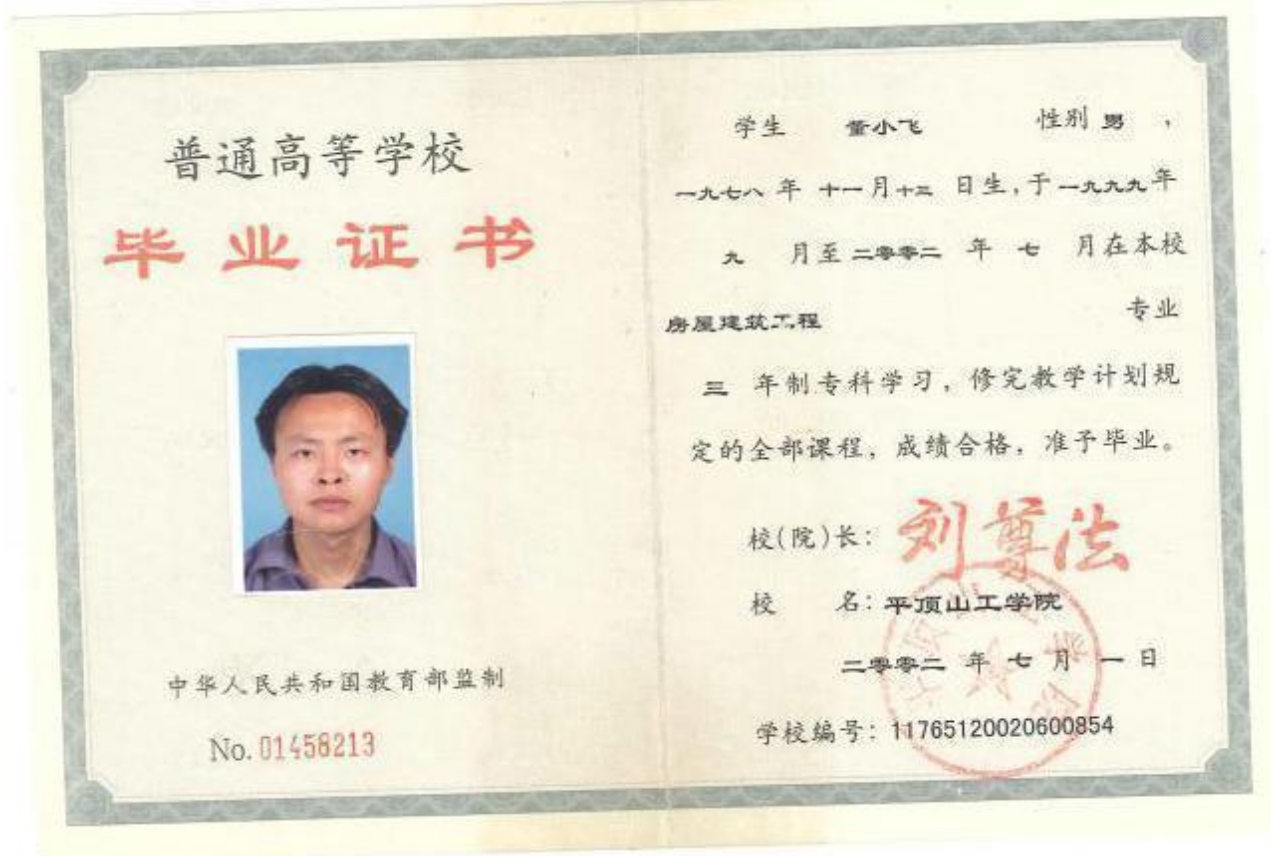 普通高等学校
毕业证书
中华人民共和国教育部监制
No. 01458213
学生 董小飞 性别 男 ，
一九七八 年 十一 月 十三 日生，于 一九九九 年
九 月至 二零零二 年 七 月在本校
房屋建筑工程 专业
三 年制专科学习，修完教学计划规
定的全部课程，成绩合格，准予毕业。
校(院)长：刘尊法
校 名：平顶山工学院
二零零二 年 七 月 一 日
学校编号：11765120020600854